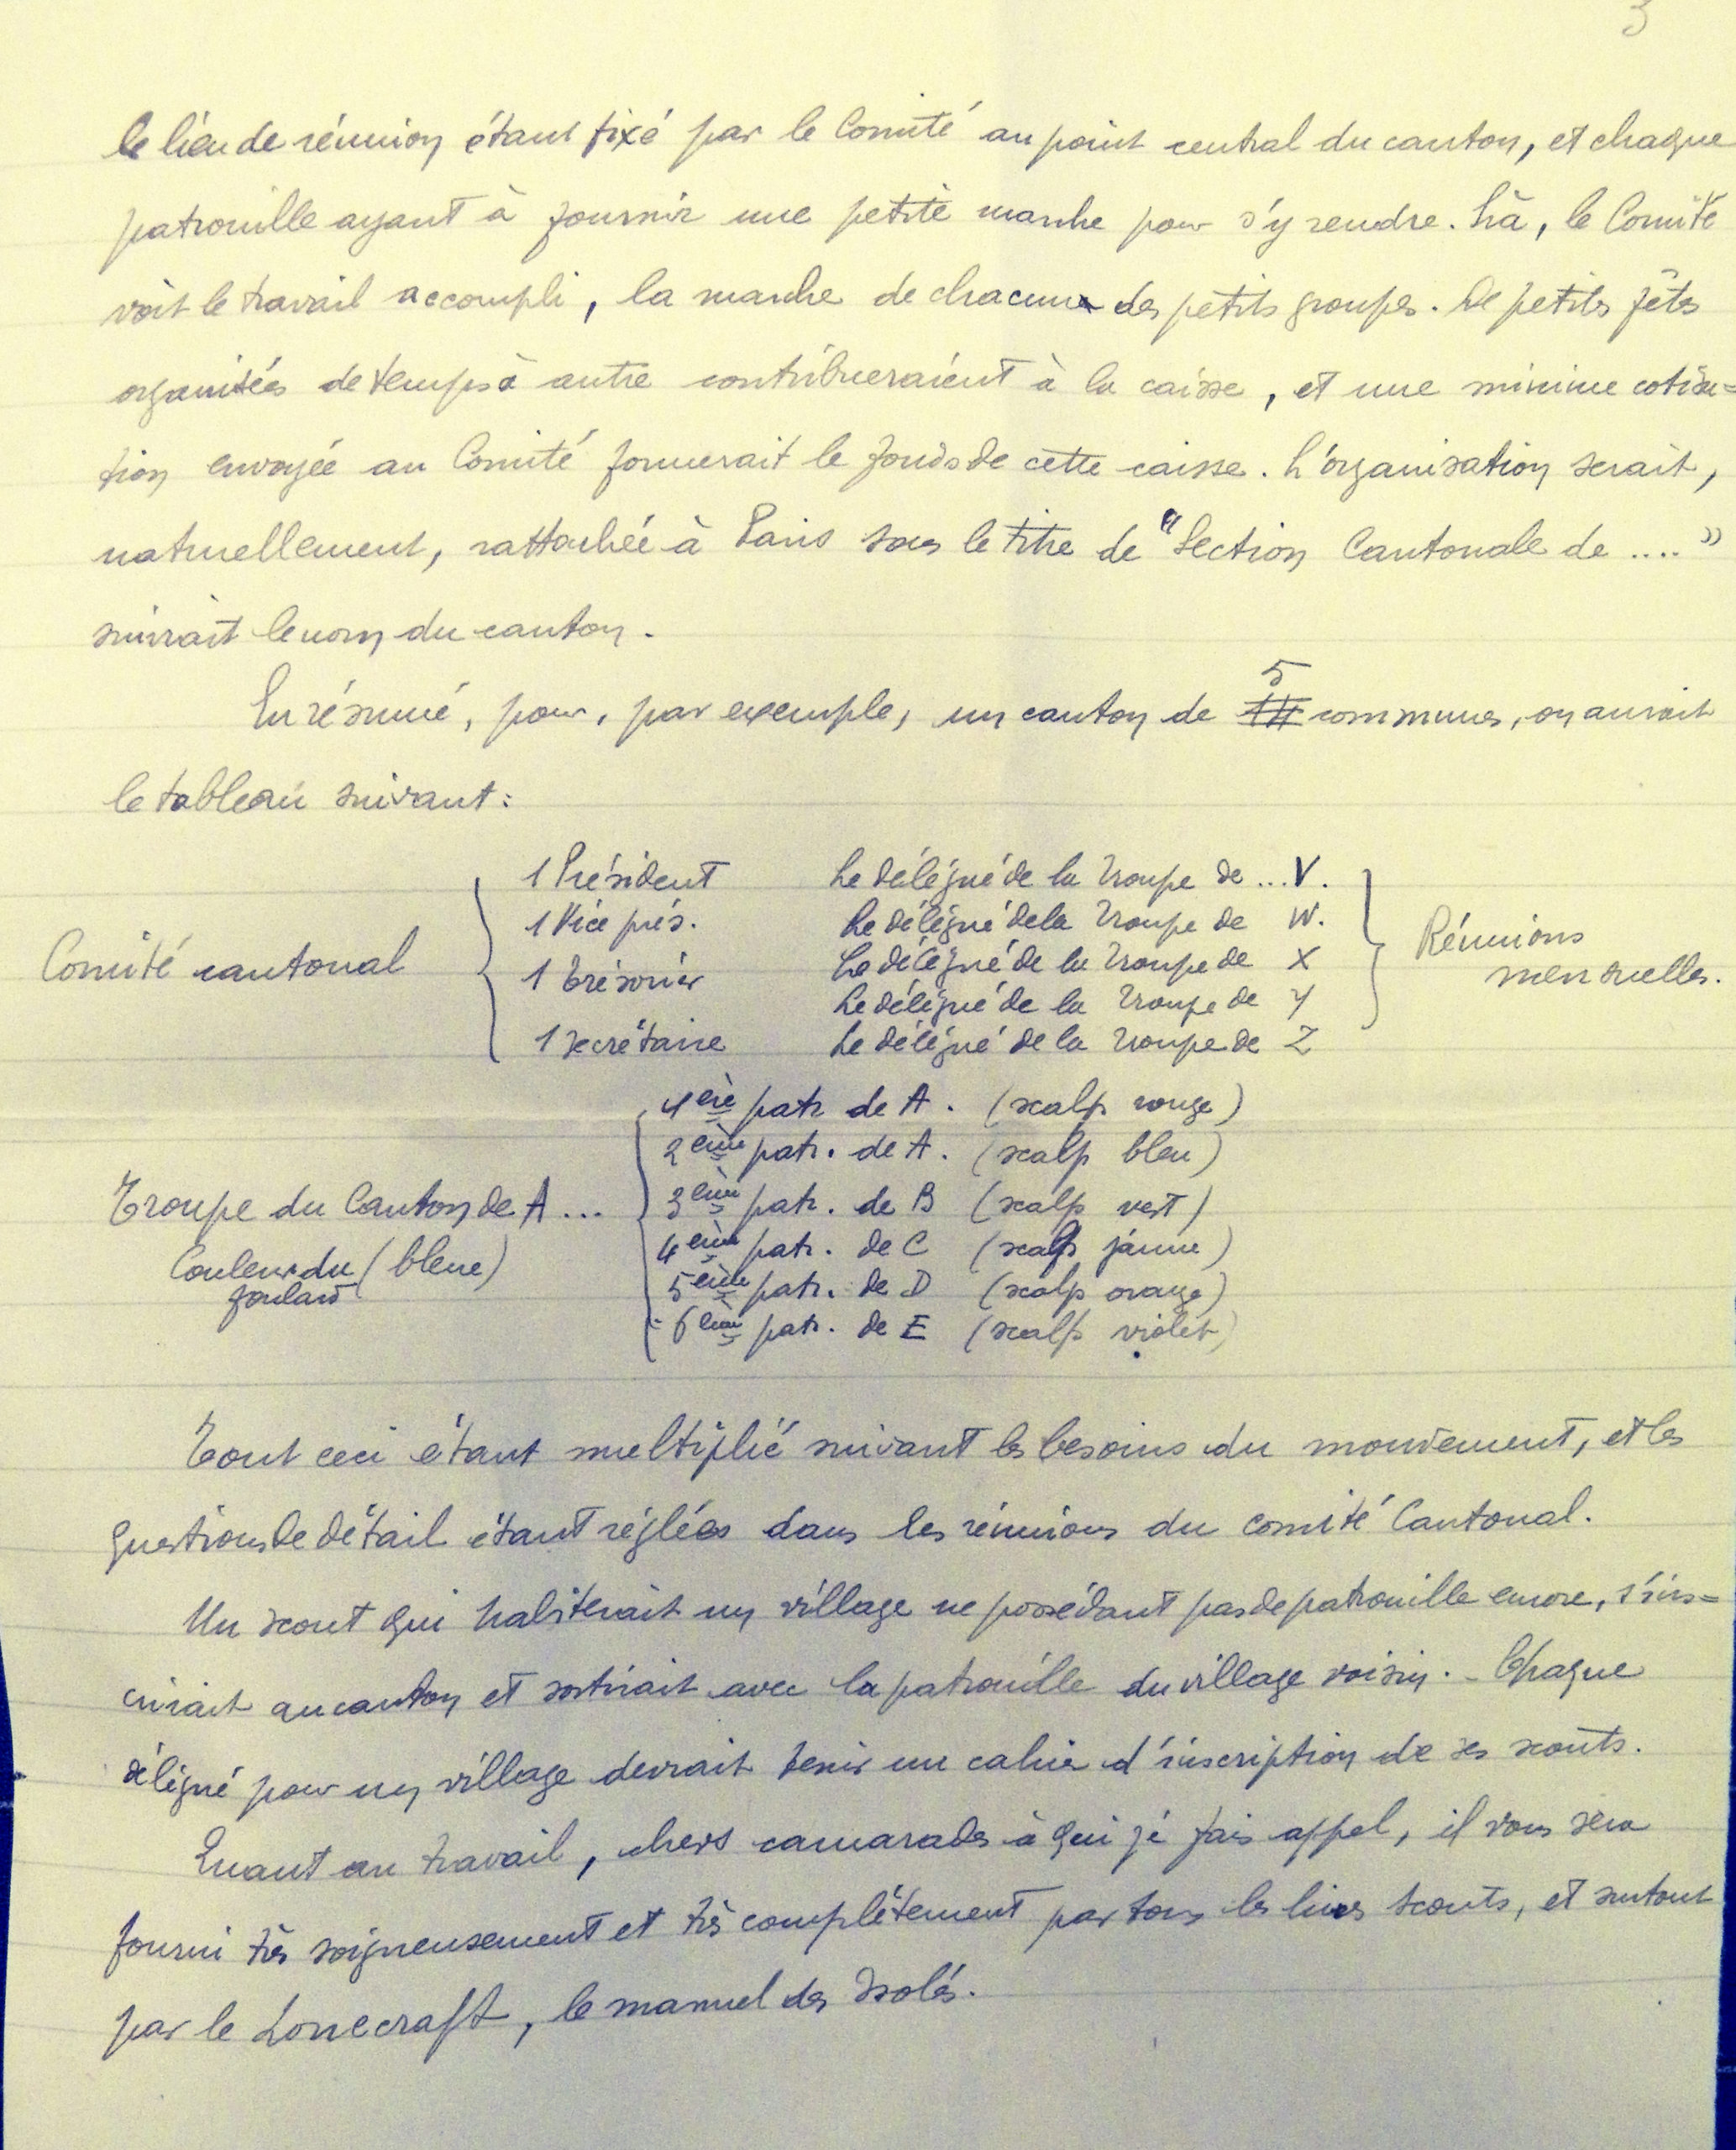 3
le lieu de réunion étant fixé par le Comité au point central du canton, et chaque
patrouille ayant à fournir une petite marche pour s'y rendre. Là, le Comité
voit le travail accompli, la marche de chacun des petits groupes. De petites fêtes
organisées de temps à autre contribueraient à la caisse, et une minime cotisa=
tion envoyée au Comité formerait le fonds de cette caisse. L'organisation serait,
naturellement, rattachée à Paris sous le titre de "Section Cantonale de .... "
suivrait le nom du canton.
En résumé, pour, par exemple, un canton de 5 communes, on aurait
le tableau suivant:
1 Président Le délégué de la Troupe de ... V.
1 Vice prés. Le délégué de la Troupe de W.
Comité cantonal 1 trésorier Le délégué de la Troupe de X Réunions
Le délégué de la Troupe de Y mensuelles.
1 secrétaire Le délégué de la Troupe de Z
1ère patr. de A. (scalp rouge)
2ème patr. de A. (scalp bleu)
Troupe du Canton de A ... 3ème patr. de B (scalp vert)
Couleur du (bleue) 4ème patr. de C (scalp jaune)
foulard 5ème patr. de D (scalp orange)
6ème patr. de E (scalp violet)
Tout ceci étant multiplié suivant les besoins du mouvement, et les
questions de détail étant réglées dans les réunions du comité Cantonal.
Un scout qui habiterait un village ne possédant pas de patrouille encore, s'ins=
crirait au canton et sortirait avec la patrouille du village voisin. - Chaque
délégué pour un village devrait tenir un cahier d'inscription de ses scouts.
Quant au travail, chers camarades à qui je fais appel, il vous sera
fourni très soigneusement et très complètement par tous les livres scouts, et surtout
par le Lonecraft, le manuel des Isolés.